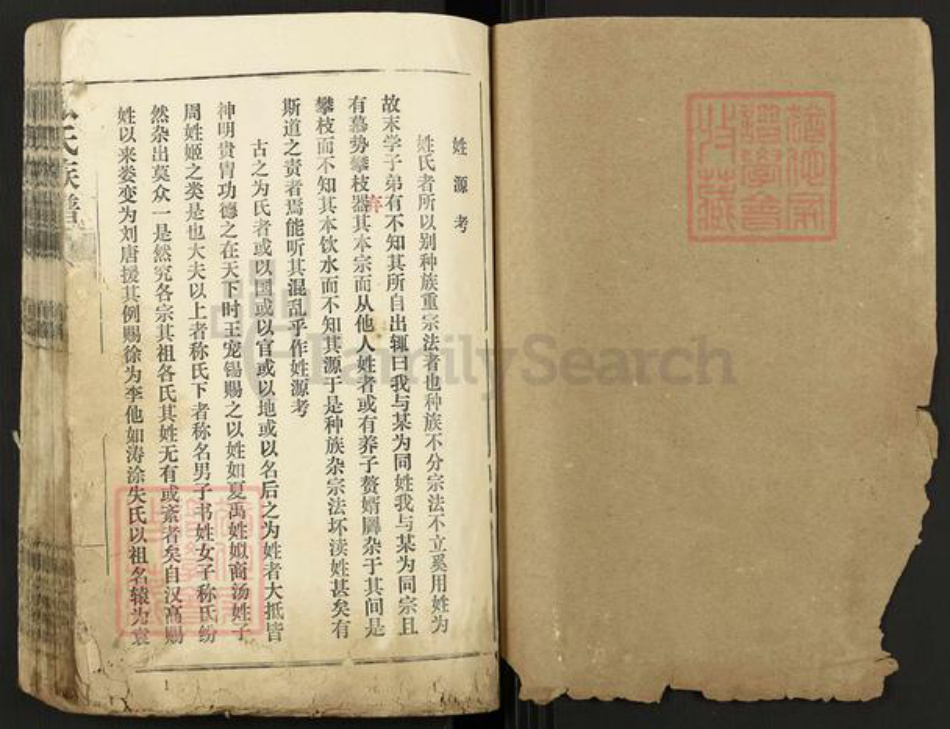 姓源考
姓氏者所以别种族重宗法者也种族不分宗法不立奚用姓为
故末学子弟有不知其所自出辄曰我与某为同姓我与某为同宗且
有慕势攀枝器其本宗而从他人姓者或有养子赘婿羼杂于其间是
弃
攀枝而不知其本饮水而不知其源于是种族杂宗法坏渎姓甚矣有
斯道之责者焉能听其混乱乎作姓源考
古之为氏者或以国或以官或以地或以名后之为姓者大抵皆
神明贵胄功德之在天下时王宠锡赐之以姓如夏禹姓姒商汤姓子
周姓姬之类是也大夫以上者称氏下者称名男子书姓女子称氏纷
然杂出莫众一是然究各宗其祖各氏其姓无有或紊者矣自汉高赐
姓以来娄变为刘唐援其例赐徐为李他如涛涂失氏以祖名辕为袁
氏族谱
FamilySearch